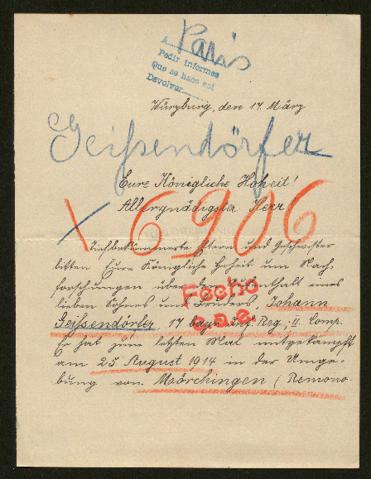 A Paris
Pedir informes
Que se hace así
Devolver
Würzburg, den 17. März
Geißendörfer
Eure Königliche Hoheit!
Allergnädigster Herr
X 6906
Tiefbekümmerte Eltern und Geschwister
bitten Eure Königliche Hoheit um Nach
forschungen über den Aufenthalt eines
lieben Sohnes und Bruders, Johann
Fecho
Geißendörfer 17 bayr. Inf. Reg., II. Comp.
Er hat zum letzten Mal mitgekämpft
am 25 August 1914 in der Umge-
bung von Mörchingen (Remono-